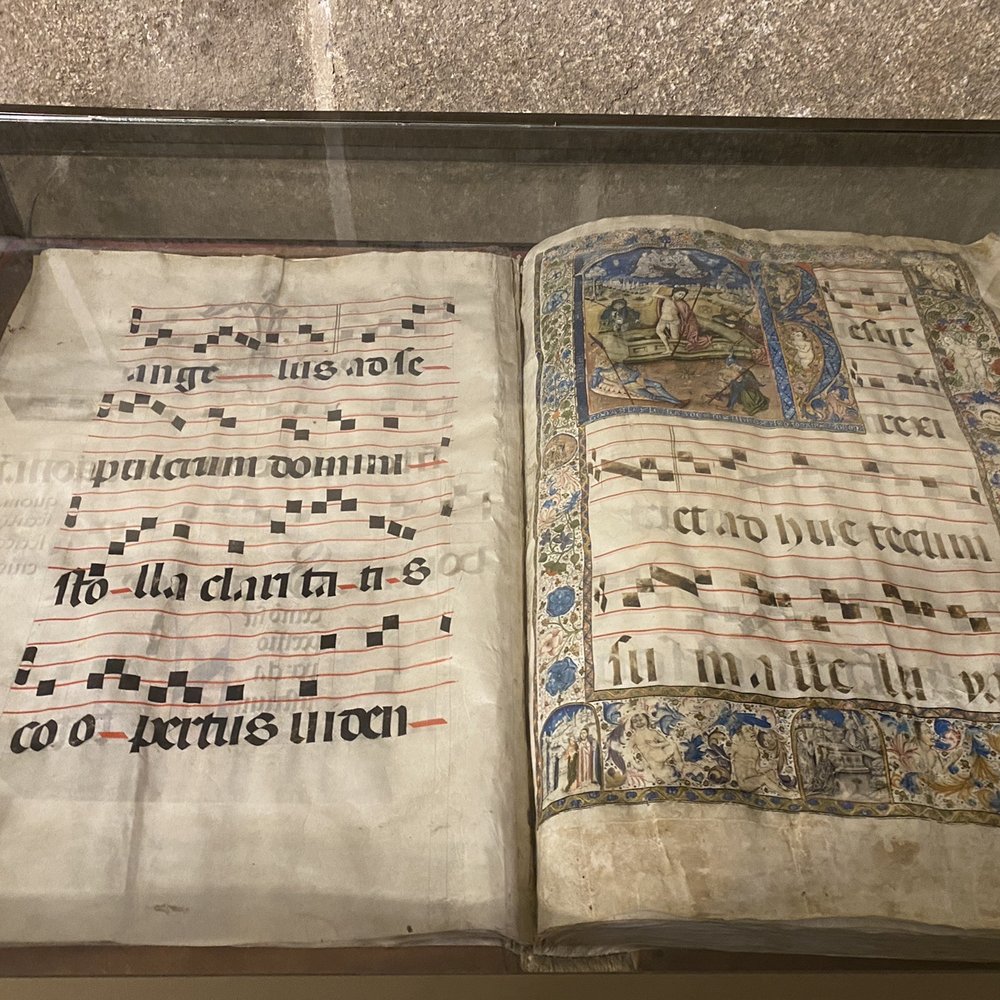 ange lus ad se
pulcrum domini
sto lla clari ta ti s
co o pertus uiden
Resur
rexi
et ad huc tecum
su m a lle lu ya